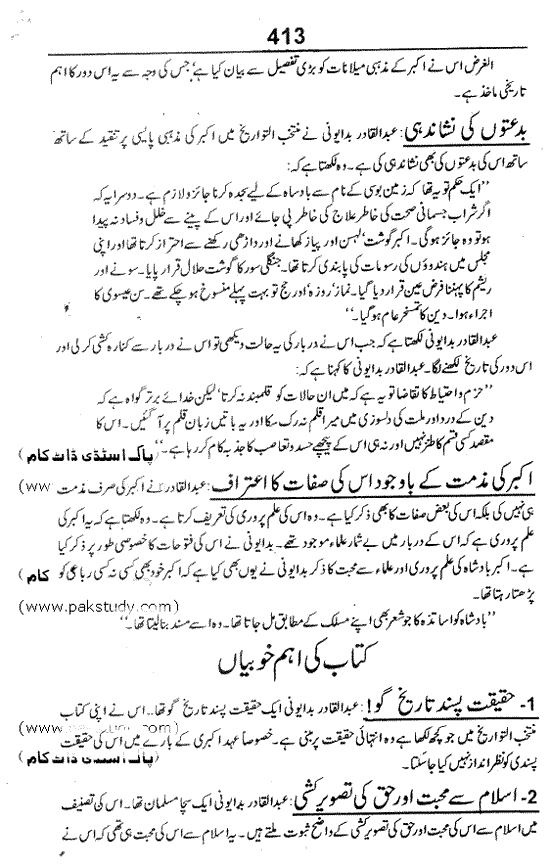 413
الغرض اس نے اکبر کے مذہبی میلانات کو بڑی تفصیل سے بیان کیا ہے‘ جس کی وجہ سے یہ اس دور کا اہم
تاریخی ماخذ ہے۔
بدعتوں کی نشاندہی: عبدالقادر بدایونی نے منتخب التواریخ میں اکبر کی مذہبی پالیسی پر تنقید کے ساتھ
ساتھ اس کی بدعتوں کی بھی نشاندہی کی ہے۔ وہ لکھتا ہے کہ:
’’ایک حکم تو یہ تھا کہ زمین بوسی کے نام سے بادشاہ کے لیے سجدہ کرنا جائز و لازم ہے۔ دوسرا یہ کہ
اگر شراب جسمانی صحت کی خاطر علاج کی خاطر پی جائے اور اس کے پینے سے خلل و فساد نہ پیدا
ہو تو وہ جائز ہوگی۔ اکبر گوشت‘ لہسن اور پیاز کھانے اور داڑھی رکھنے سے احتراز کرتا تھا اور اپنی
مجلس میں ہندوؤں کی رسومات کی پابندی کرتا تھا۔ جنگلی سور کا گوشت حلال قرار پایا۔ سونے اور
ریشم کا پہننا فرض عین قرار دیا گیا۔ نماز‘ روزہ‘ اور حج تو بہت پہلے منسوخ ہو چکے تھے۔ سن عیسوی کا
اجراء ہوا۔ دین کا تمسخر عام ہوگیا۔‘‘
عبدالقادر بدایونی لکھتا ہے کہ جب اس نے دربار کی یہ حالت دیکھی تو اس نے دربار سے کنارہ کشی کر لی اور
اس دور کی تاریخ لکھنے لگا۔ عبدالقادر بدایونی کا کہنا ہے کہ:
’’حزم و احتیاط کا تقاضا تو یہ ہے کہ میں ان حالات کو قلمبند نہ کرتا‘ لیکن خدائے برتر گواہ ہے کہ
دین کے درد اور ملت کی دلسوزی میں میرا قلم نہ رک سکا اور یہ باتیں زبان قلم پر آ گئیں۔ اس کا
مقصد کسی قسم کا طنز نہیں اور نہ ہی اس کے پیچھے حسد و تعاصب کا جذبہ کام کر رہا ہے۔‘‘ (پاک اسٹڈی ڈاٹ کام)
اکبر کی مذمت کے باوجود اس کی صفات کا اعتراف: عبدالقادر نے اکبر کی صرف مذمت (ww
ہی نہیں کی بلکہ اس کی بعض صفات کا بھی ذکر کیا ہے۔ وہ اس کی علم پروری کی تعریف کرتا ہے۔ وہ لکھتا ہے کہ یہ اکبر کی
علم پروری ہے کہ اس کے دربار میں بے شمار علماء موجود تھے۔ بدایونی نے اس کی فتوحات کا خصوصی طور پر ذکر کیا
ہے۔ اکبر بادشاہ کی علم پروری اور علماء سے محبت کا ذکر بدایونی نے یوں بھی کیا ہے کہ اکبر خود بھی کسی نہ کسی رباعی کو کام)
پڑھتا رہتا تھا۔
(www.pakstudy.com)
’’بادشاہ کو اساتذہ کا جو شعر بھی اپنے مسلک کے مطابق مل جاتا تھا۔ وہ اسے مسند بنا لیتا تھا۔‘‘
کتاب کی اہم خوبیاں
1- حقیقت پسند تاریخ گو!: عبدالقادر بدایونی ایک حقیقت پسند تاریخ گو تھا۔ اس نے اپنی کتاب
منتخب التواریخ میں جو کچھ لکھا ہے وہ انتہائی حقیقت پر مبنی ہے۔ خصوصاً عہد اکبری کے بارے میں اس کی حقیقت
پسندی کو نظر انداز نہیں کیا جا سکتا۔
2- اسلام سے محبت اور حق کی تصویر کشی: عبدالقادر بدایونی ایک سچا مسلمان تھا۔ اس کی تصنیف
میں اسلام سے اس کی محبت اور حق کی تصویر کشی کے واضح ثبوت ملتے ہیں۔ یہ اسلام سے اس کی محبت ہی تھی کہ اس نے